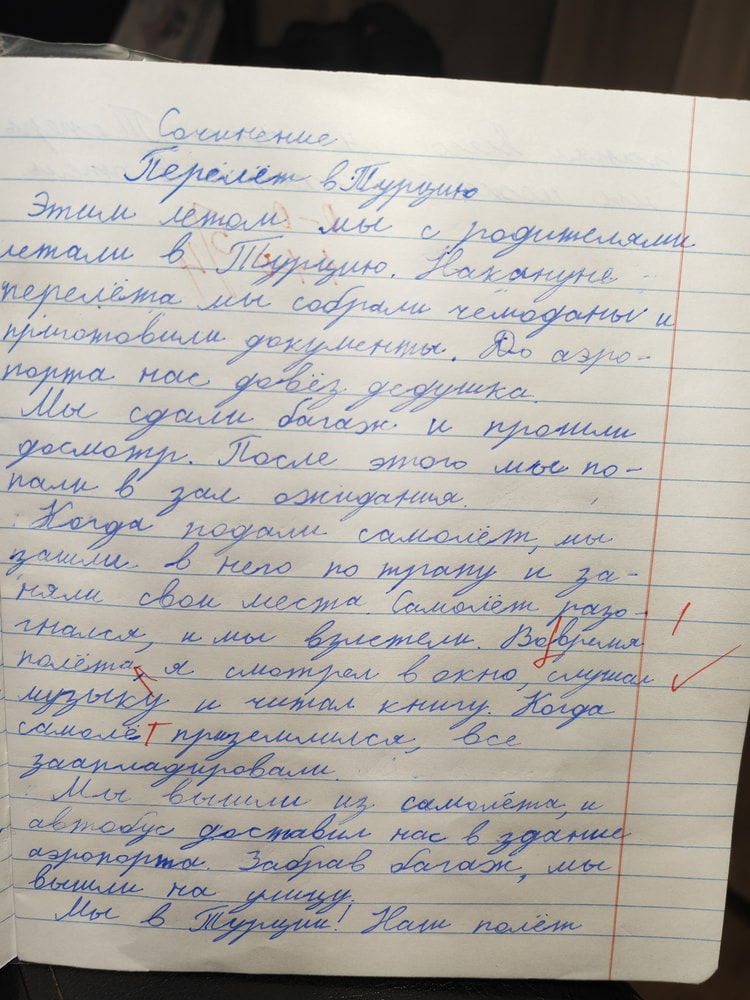 Сочинение
Перелёт в Турцию
Этим летом мы с родителями
летали в Турцию. Накануне
перелёта мы собрали чемоданы и
приготовили документы. До аэро-
порта нас довёз дедушка.
Мы сдали багаж и прошли
досмотр. После этого мы по-
пали в зал ожидания.
Когда подали самолёт, мы
зашли в него по трапу и за-
няли свои места. Самолёт разо-
гнался, и мы взлетели. Вовремя
полёта, я смотрел в окно, слушал
музыку и читал книгу. Когда
самолёт приземлился, все
зааплодировали.
Мы вышли из самолёта, и
автобус доставил нас в здание
аэропорта. Забрав багаж, мы
вышли на улицу.
Мы в Турции! Наш полёт